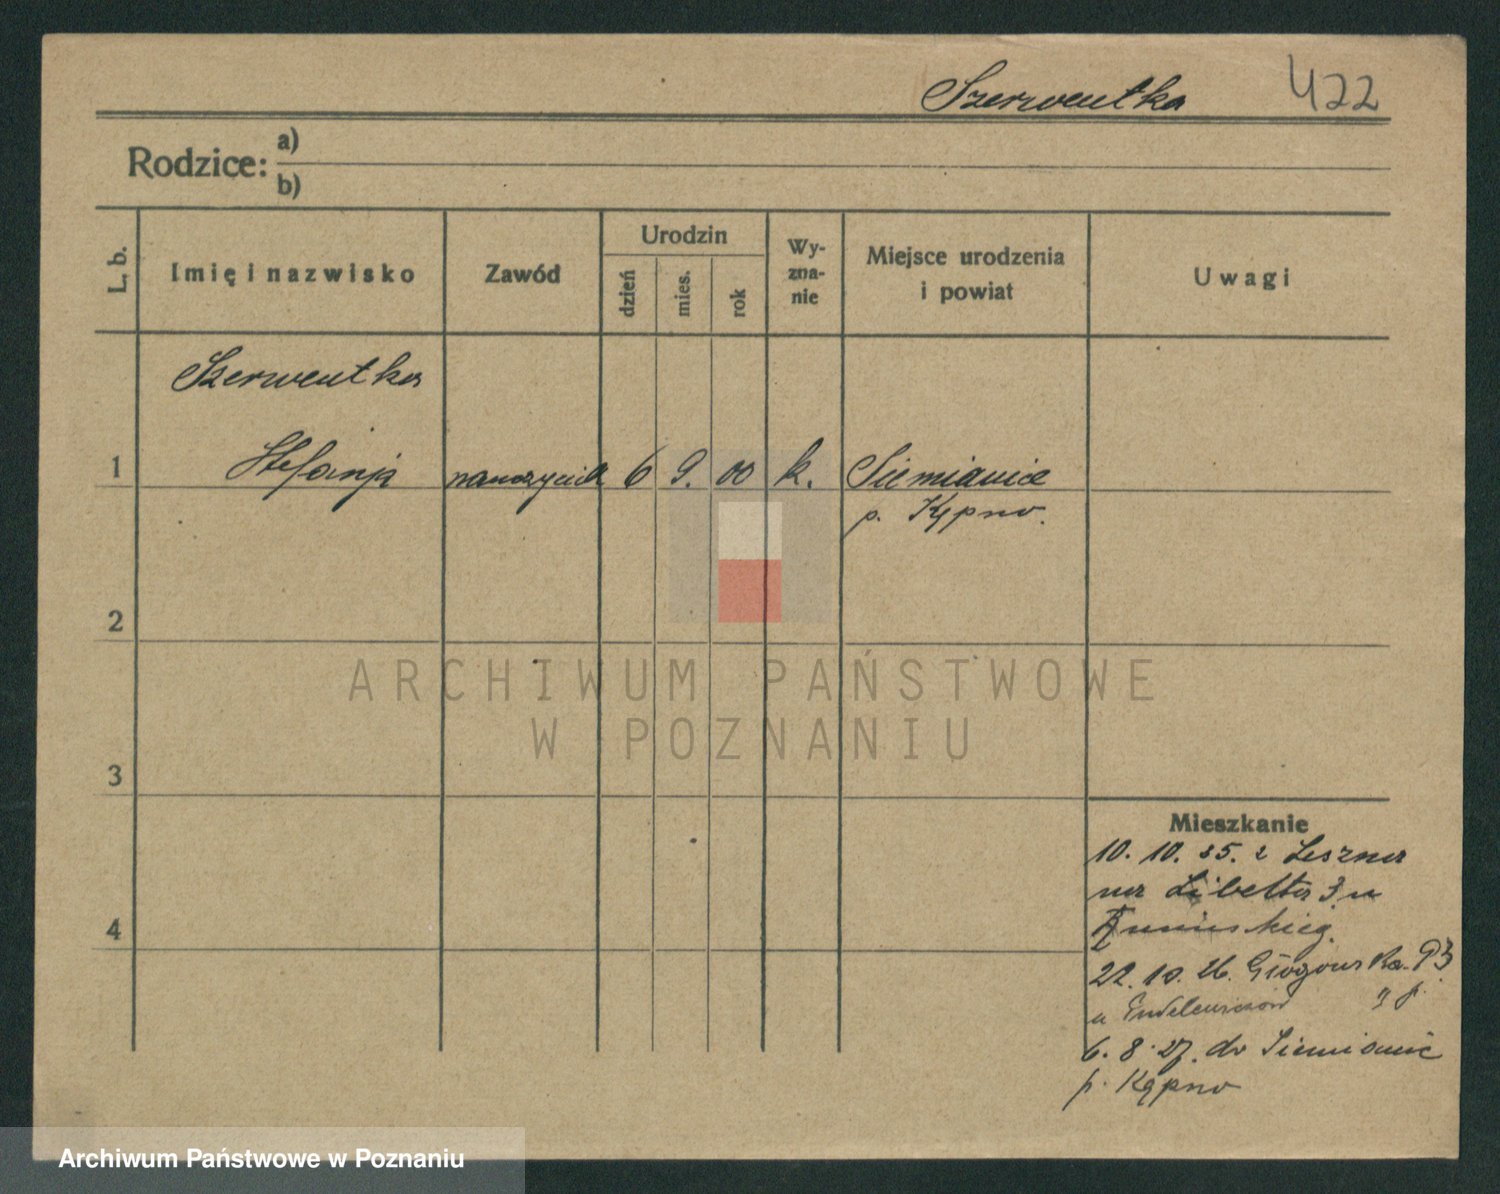 Szerwentka 422
Rodzice: a)
b)
L. b.
Imię i nazwisko
Zawód
Urodzin
dzień
mies.
rok
Wy-
zna-
nie
Miejsce urodzenia
i powiat
Uwagi
Szerwentka
1 Stefanja nauczyciel 6 9. 00 k. Siemianice
p. Kępno.
2
ARCHIWUM PAŃSTWOWE
W POZNANIU
3
Mieszkanie
10. 10. 25. z Leszna
na Libelta 3 u
4
22. 10. 26. Głogowska 93
u
6. 8. 27. do Siemianic
p. Kępno
Archiwum Państwowe w Poznaniu